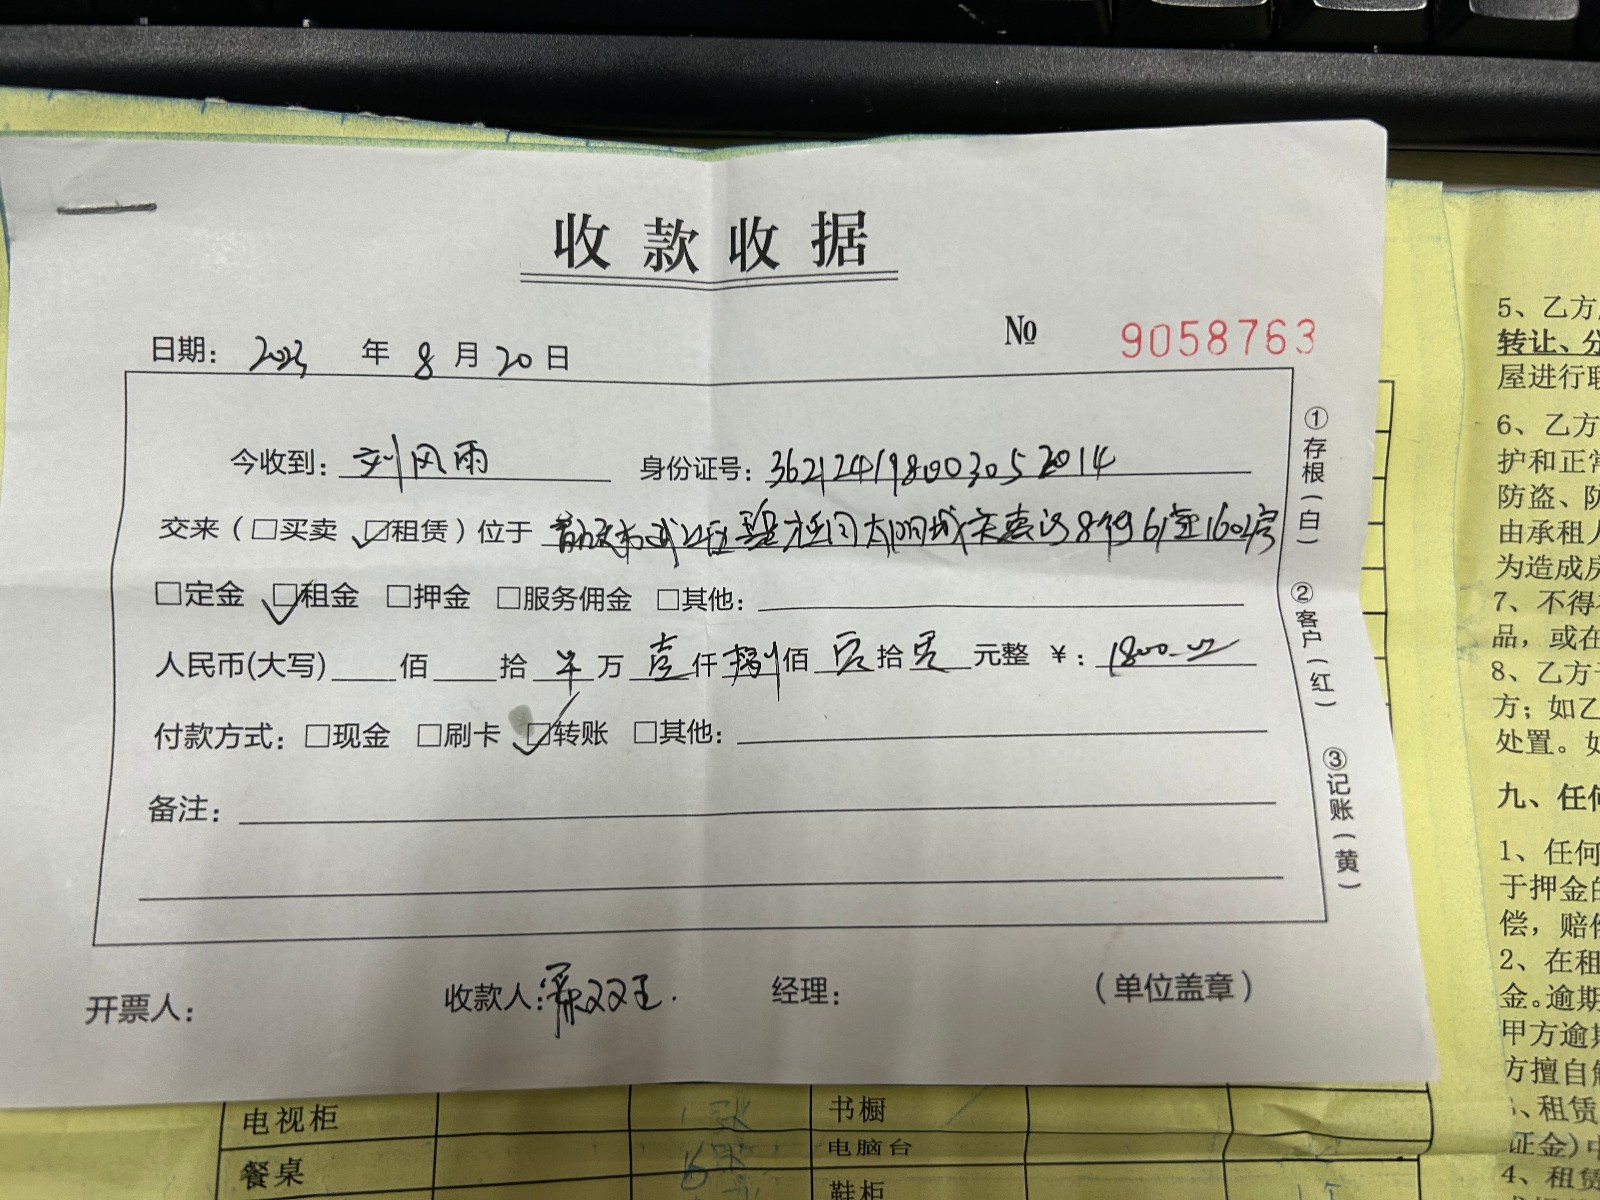 收款收据
日期： 2023 年 8 月 20 日
№ 9058763
今收到： 刘风雨 身份证号： 362124198003052014
交来（☐买卖 ☑租赁）位于 市武江区碧桂园太阳城 8街61座1602房
☐定金 ☑租金 ☐押金 ☐服务佣金 ☐其他：
人民币(大写) 佰 拾 万 壹仟 捌佰 零拾 零元整 ¥： 1800.00
付款方式：☐现金 ☐刷卡 ☑转账 ☐其他：
备注：
开票人： 收款人： 双玉. 经理： （单位盖章）
①存根（白）
②客户（红）
③记账（黄）
5、乙方
转让、分
屋进行
6、乙方
护和正常
防盗、防
由承租人
为造成房
7、不得
品，或在
8、乙方
方；如乙
处置。如
九、任何
1、任何
于押金的
偿，赔偿
2、在租
金。逾期
甲方逾期
方擅自解
、租赁
证金)中
4、租赁
电视柜 书橱
电脑台
餐桌 6 鞋柜